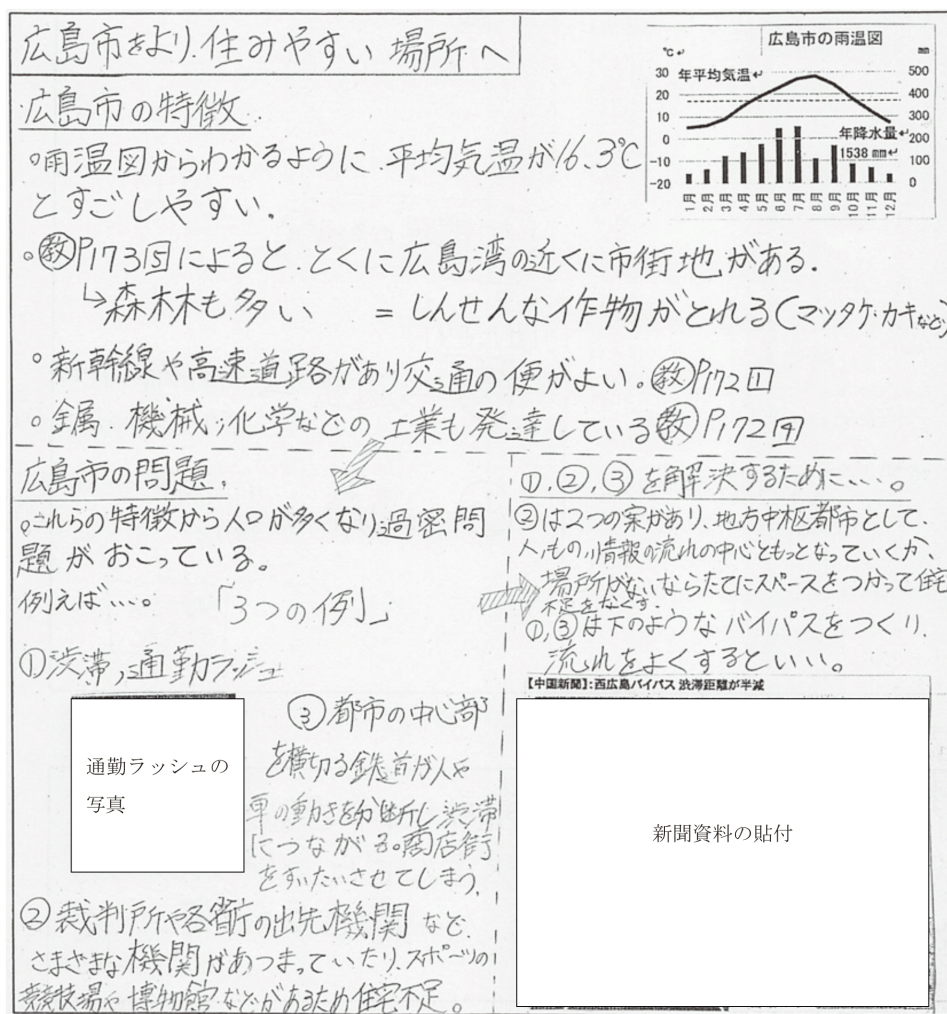 広島市をより住みやすい場所へ
広島市の雨温図
℃
mm
30
20
10
0
-10
-20
年平均気温
500
400
300
200
100
0
年降水量
1538 mm
1月
2月
3月
4月
5月
6月
7月
8月
9月
10月
11月
12月
広島市の特徴
○雨温図からわかるように、平均気温が16.3℃
とすごしやすい。
○教P173⑤によると、とくに広島湾の近くに市街地がある。
↳森林も多い =しんせんな作物がとれる(マツタケ・カキなど)
○新幹線や高速道路があり交通の便がよい。教P172①
○金属、機械、化学などの工業も発達している教P172④
広島市の問題。
○これらの特徴から人口が多くなり過密問
題がおこっている。
例えば…。 「3つの例」
①渋滞,通勤ラッシュ
通勤ラッシュの
写真
③都市の中心部
を横切る鉄道が人や
車の動きを分断し渋滞
につながる。商店街
をすいたいさせてしまう。
②裁判所や各省庁の出先機関など、
さまざまな機関があつまっていたり、スポーツの
競技場や博物館などがあるため住宅不足。
①,②,③を解決するために…。
②は2つの案があり、地方中枢都市として、
人,もの,情報の流れの中心ともっとなっていくか、
場所がないならたてにスペースをつかって住宅
不足をなくす。
①,③は下のようなバイパスをつくり、
流れをよくするといい。
【中国新聞】:西広島バイパス 渋滞距離が半減
新聞資料の貼付